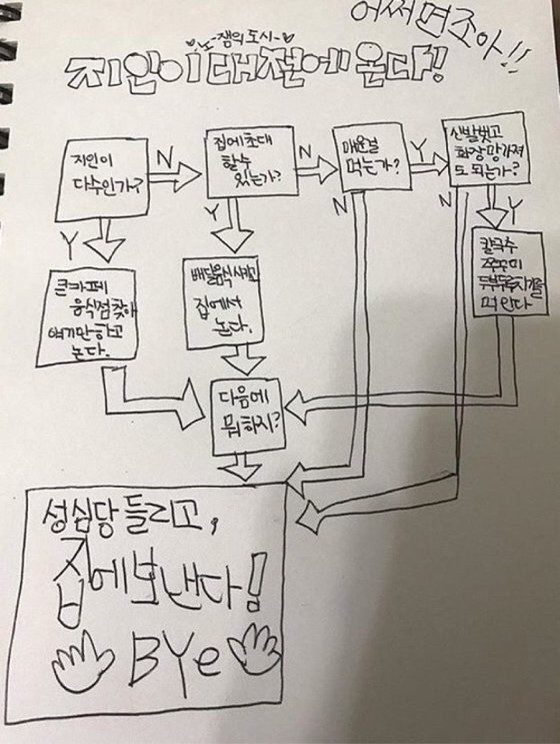 어쩌면조아!!
노-잼의 도시-
지인이대전에온다!
지인이
다수인가?
N
집에초대
할수
있는가?
N
매운걸
먹는가?
Y
신발벗고
화장망가져
도되는가?
Y
Y
N
N
Y
큰카페
음식점찾아
얘기만하고
논다.
배달음식시키고
집에서
논다.
칼국수
쭈꾸미
두부두루치기를
먹인다
다음에
뭐하지?
성심당들리고,
집에보낸다!
BYe